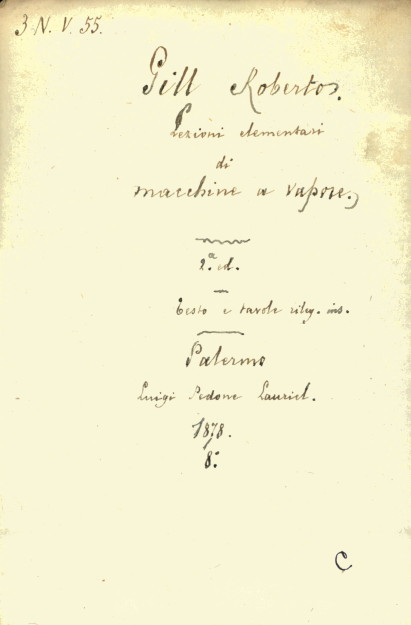 3-N. V. 55.
Gill Roberto.
Lezioni elementari
di
macchine a vapore.
2.a ed.
Testo e tavole rileg. ins.
Palermo
Luigi Pedone Lauriel.
1878.
8.°
C